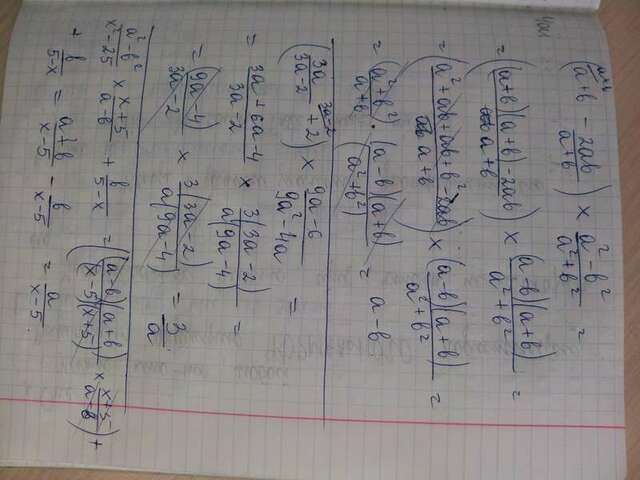 (a+b - 2ab/(a+b)) × (a²-b²)/(a²+b²) =
= (((a+b)(a+b)-2ab)/(a+b)) × ((a-b)(a+b))/(a²+b²) =
= ((a²+ab+ab+b²-2ab)/(a+b)) × ((a-b)(a+b))/(a²+b²) =
= (a²+b²)/(a+b) · ((a-b)(a+b))/(a²+b²) = a-b
(3a/(3a-2) + 2) × (9a-6)/(9a²-4a) =
= (3a+6a-4)/(3a-2) × 3(3a-2)/(a(9a-4)) =
= (9a-4)/(3a-2) × 3(3a-2)/(a(9a-4)) = 3/a.
(a²-b²)/(x²-25) × (x+5)/(a-b) + b/(5-x) = ((a-b)(a+b))/((x-5)(x+5)) × (x+5)/(a-b) +
+ b/(5-x) = (a+b)/(x-5) - b/(x-5) = a/(x-5).